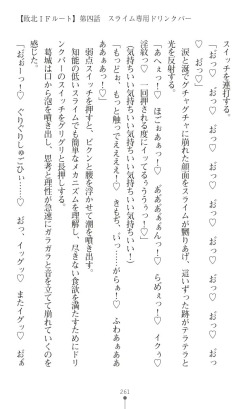 【敗北ＩＦルート】第四話　スライム専用ドリンクバー
スイッチを連打する。
「おっ♡　おっ♡　おっ♡　おっ♡　おっ♡　おっ♡　おっ♡
♡　おっ♡」
涙と涎でグチャグチャに崩れた顔面をスライムが撫であげ、這いずった跡がテラテラと
光を反射する。
「あへぇっ！♡　ほごぉぁぁっ！♡　ああああぁんっ！♡　らめぇっ！♡　イクぅ♡
淫紋っ♡　一回押される度にイッてるぅううぅっ！♡」
（気持ちいい気持ちいい気持ちいい気持ちいいいい！）
「もっどぉ、もっと触ってえぇええ！♡　きもち、いっ……がらぁ！♡　ふわあぁああ
ああぁあっ！」
弱点スイッチを押すと、ビクンと腰を浮かせて潮を噴き出す。
知能の低いスライムでも簡単なメカニズムを理解し、尽きない食欲を満たすためにドリ
ンクバーのスイッチをグリグリと長押しする。
葛城は口から泡を噴き出し、思考と理性が急速にガラガラと音を立てて崩れていくのを
感じた。
「おぉーっ！♡　ぐりぐりしゅごひい……♡　おっ、イッグッ♡　またイグッ♡　おぉ
261